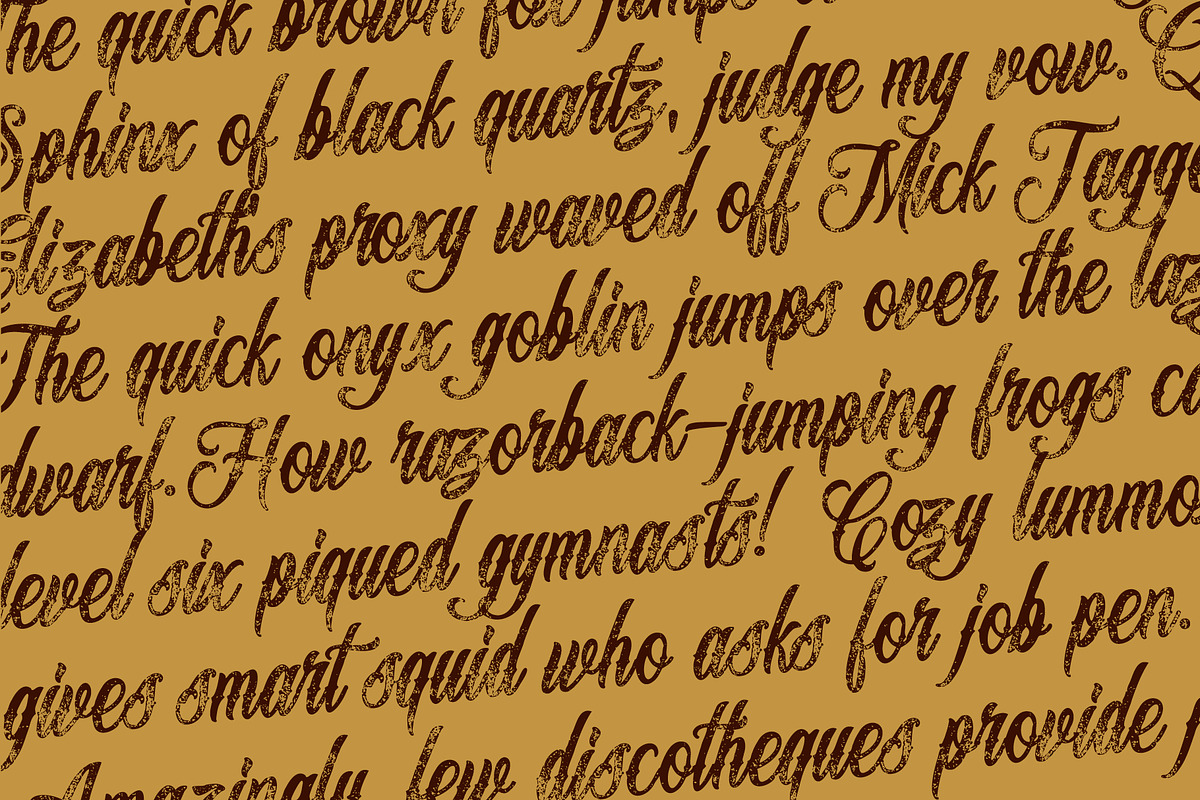 The quick brown fox jumps
Sphinx of black quartz, judge my vow.
Elizabeth's proxy waved off Mick Tagge
The quick onyx goblin jumps over the laz
dwarf. How razorback-jumping frogs ca
level six piqued gymnasts! Cozy lummo
gives smart squid who asks for job pen.
Amazingly few discotheques provide